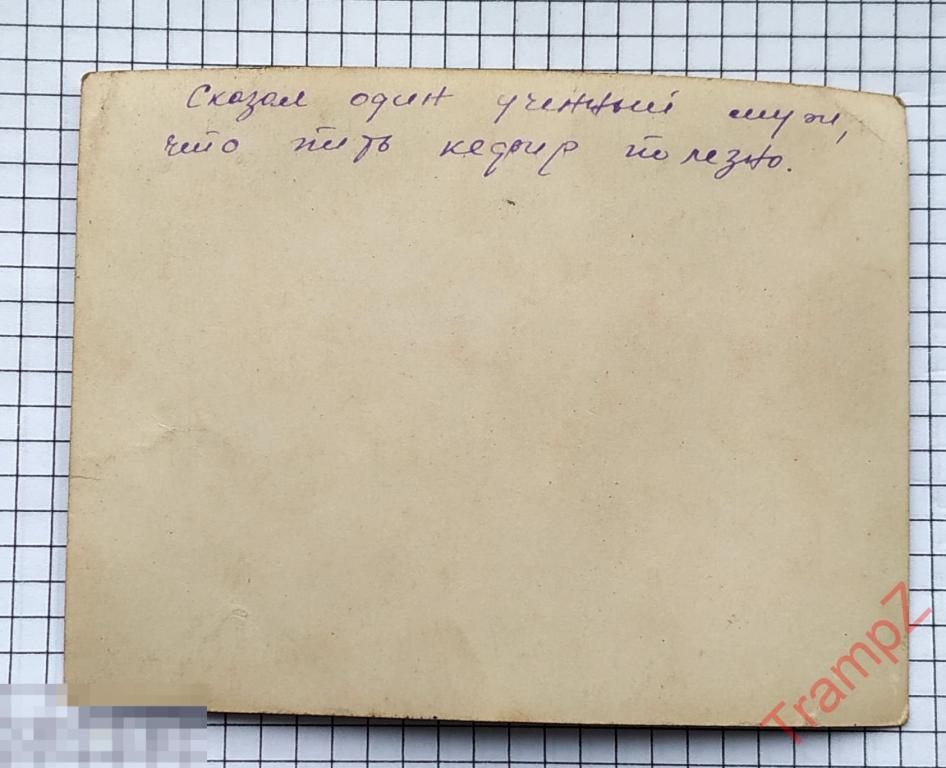 Сказал один ученный муж,
что пить кефир полезно.
TrampZ